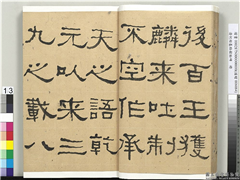 後百王獲
麟来吐制
不空作承
天之語乾
元以来三
九之載八
13